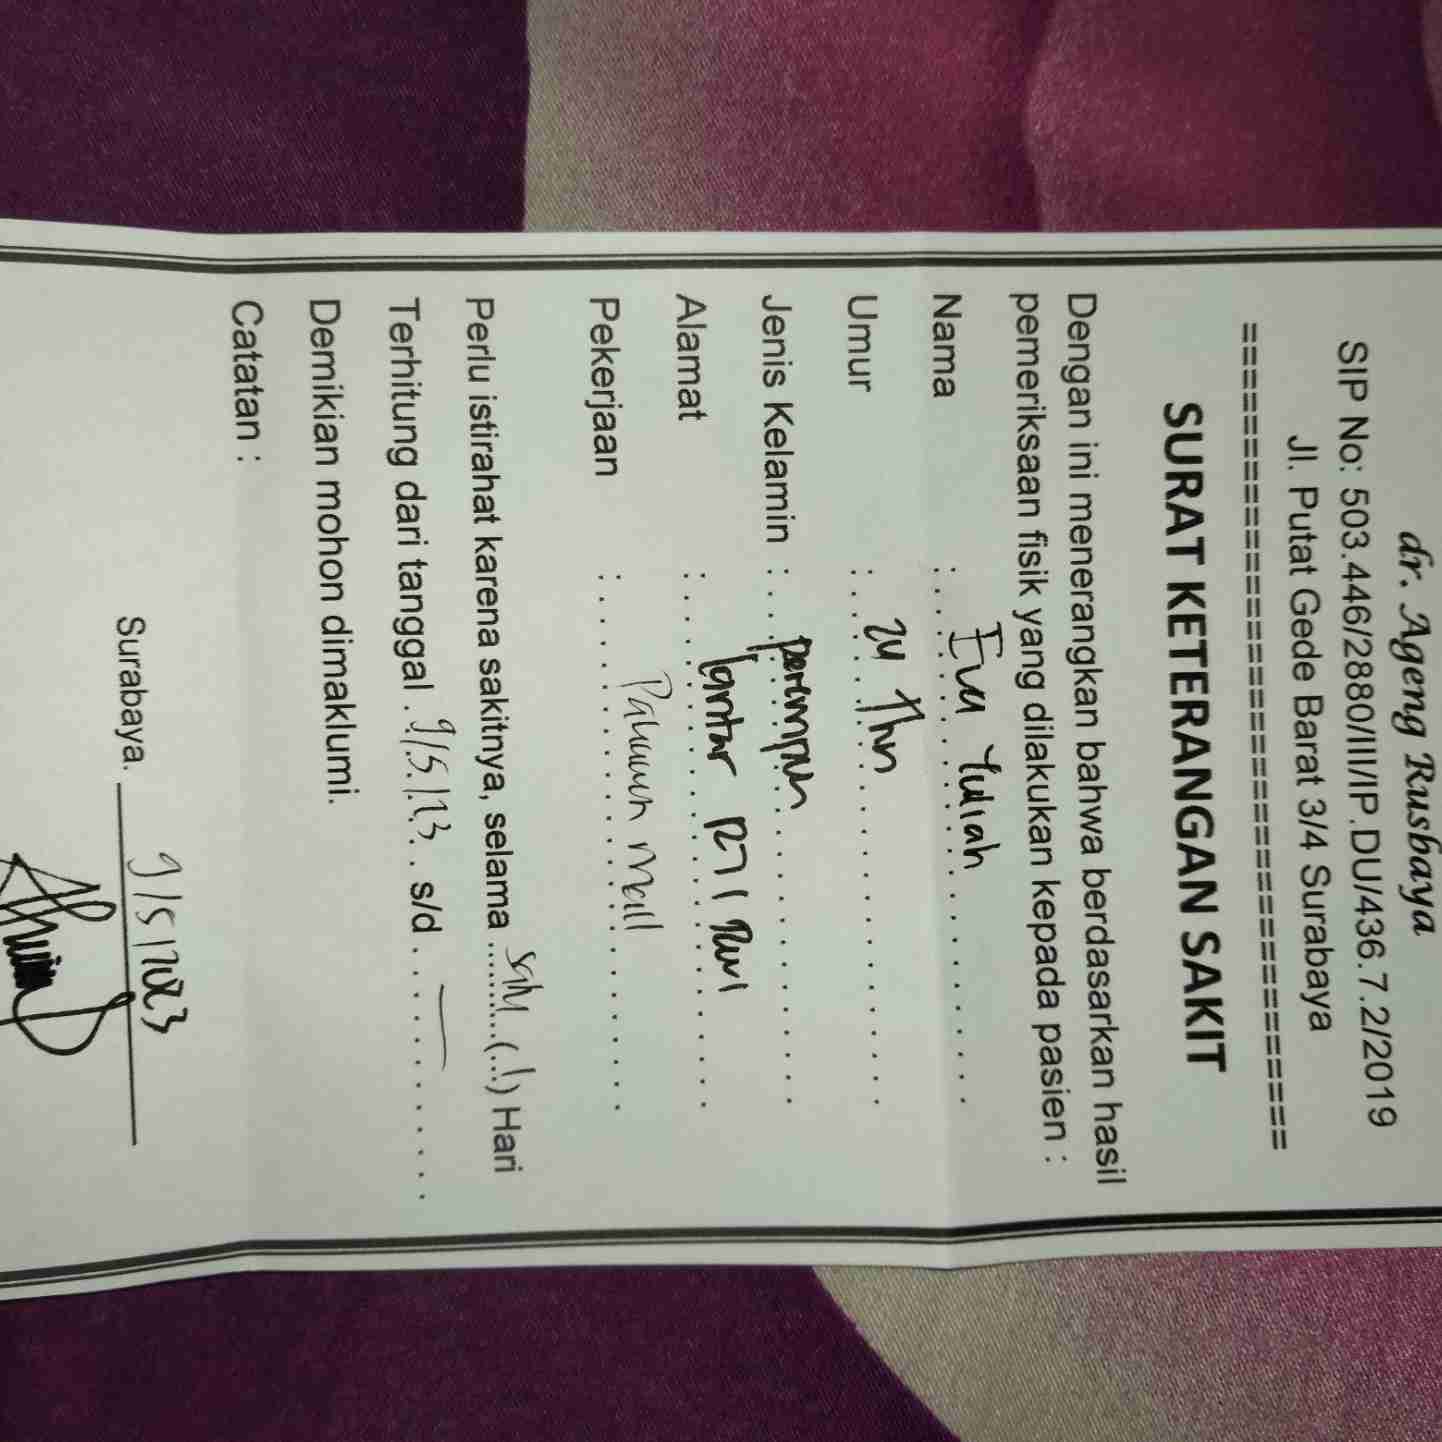 dr. Ageng Rusbaya
SIP No: 503.446/2880/III/IP.DU/436.7.2/2019
Jl. Putat Gede Barat 3/4 Surabaya
==================================
SURAT KETERANGAN SAKIT
Dengan ini menerangkan bahwa berdasarkan hasil
pemeriksaan fisik yang dilakukan kepada pasien :
Nama : Yuliah
Umur : 24 Thn
Jenis Kelamin : perempuan
Alamat :
Pekerjaan : Mall
Perlu istirahat karena sakitnya, selama satu (1) Hari
Terhitung dari tanggal 9/5/23 s/d —
Demikian mohon dimaklumi.
Catatan :
Surabaya. 9/5/2023